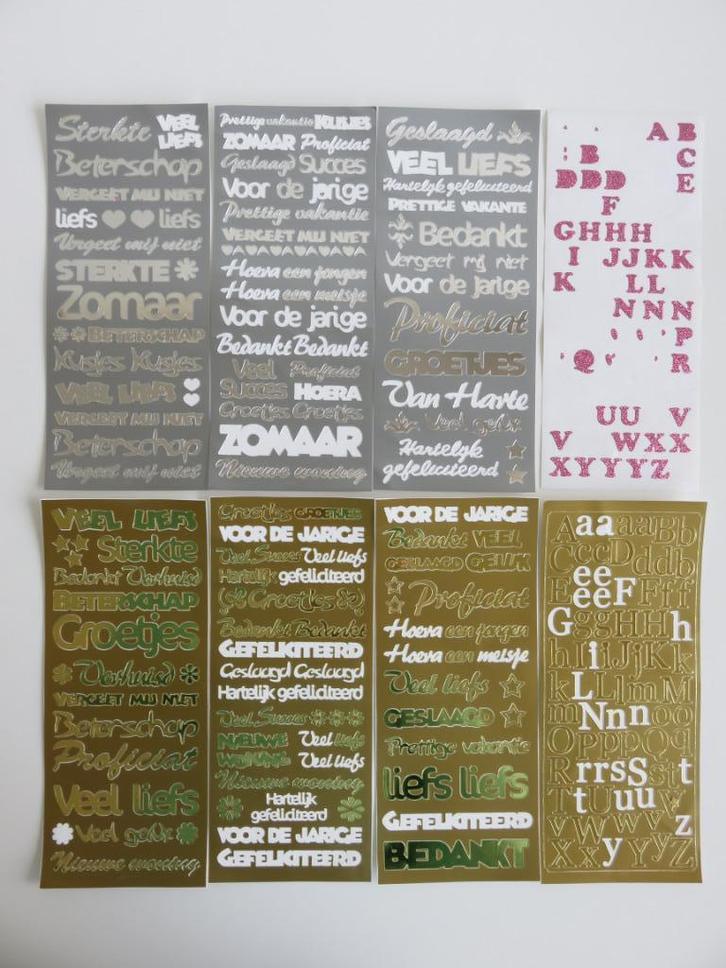 Sterkte VEEL LIEFS
Beterschap
VERGEET MIJ NIET
liefs liefs
Vergeet mij niet
STERKTE
Zomaar
BETERSCHAP
Kusjes Kusjes
VEEL LIEFS
VERGEET MIJ NIET
Beterschap
Vergeet mij niet
Prettige vakantie KUSJES
ZOMAAR Proficiat
Geslaagd Succes
Voor de jarige
Prettige vakantie
VERGEET MIJ NIET
Hoera een jongen
Hoera een meisje
Voor de jarige
Bedankt Bedankt
Veel Proficiat
Succes HOERA
Groetjes Groetjes
ZOMAAR
Nieuwe woning
Geslaagd
VEEL LIEFS
Hartelijk gefeliciteerd
PRETTIGE VAKANTE
Bedankt
Vergeet mij niet
Voor de jarige
Proficiat
GROETJES
Van Harte
Veel geluk
Hartelijk
gefeliciteerd
A B
B C
DDD E
F
GHHH
I JJKK
K LL
NNN
P
Q R
UU V
V WXX
XYYYZ
VEEL LIEFS
Sterkte
Bedankt Verhuisd
BETERSCHAP
Groetjes
Verhuisd
VERGEET MIJ NIET
Beterschap
Proficiat
Veel liefs
Veel geluk
Nieuwe woning
Groetjes GROETJES
VOOR DE JARIGE
Veel Succes Veel liefs
Hartelijk gefeliciteerd
Groetjes
Bedankt Bedankt
GEFELICITEERD
Geslaagd Geslaagd
Hartelijk gefeliciteerd
Veel Succes
NIEUWE Veel liefs
WONING Veel liefs
Nieuwe woning
Hartelijk
gefeliciteerd
VOOR DE JARIGE
GEFELICITEERD
VOOR DE JARIGE
Bedankt VEEL
GESLAAGD GELUK
Proficiat
Hoera een jongen
Hoera een meisje
Veel liefs
GESLAAGD
Prettige vakantie
liefs liefs
GEFELICITEERD
BEDANKT
AaaaaBb
CccDddb
EeeFff
GggHHHh
hIiiJjKk
kLLlmM
mNnnoo
OPPppQq
RrrsSSt
tUuuu
vVWwvvz
XxyYyZ